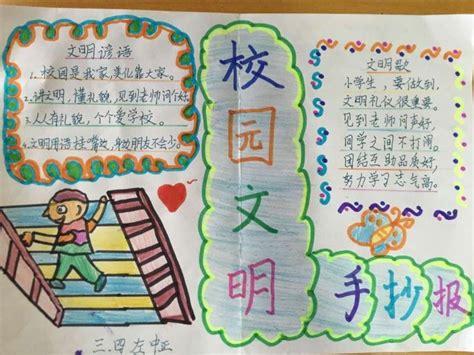 文明谚语
1.校园是我家,美化靠大家。
2.讲文明,懂礼貌,见到老师问个好。
3.人人有礼貌,个个爱学校。
4.文明用语挂嘴边,身边朋友不会少。
校园文明
手抄报
文明歌
小学生,要做到,
文明礼仪很重要。
见到老师问声好,
同学之间不打闹。
团结互助品质好,
努力学习志气高。
三.四